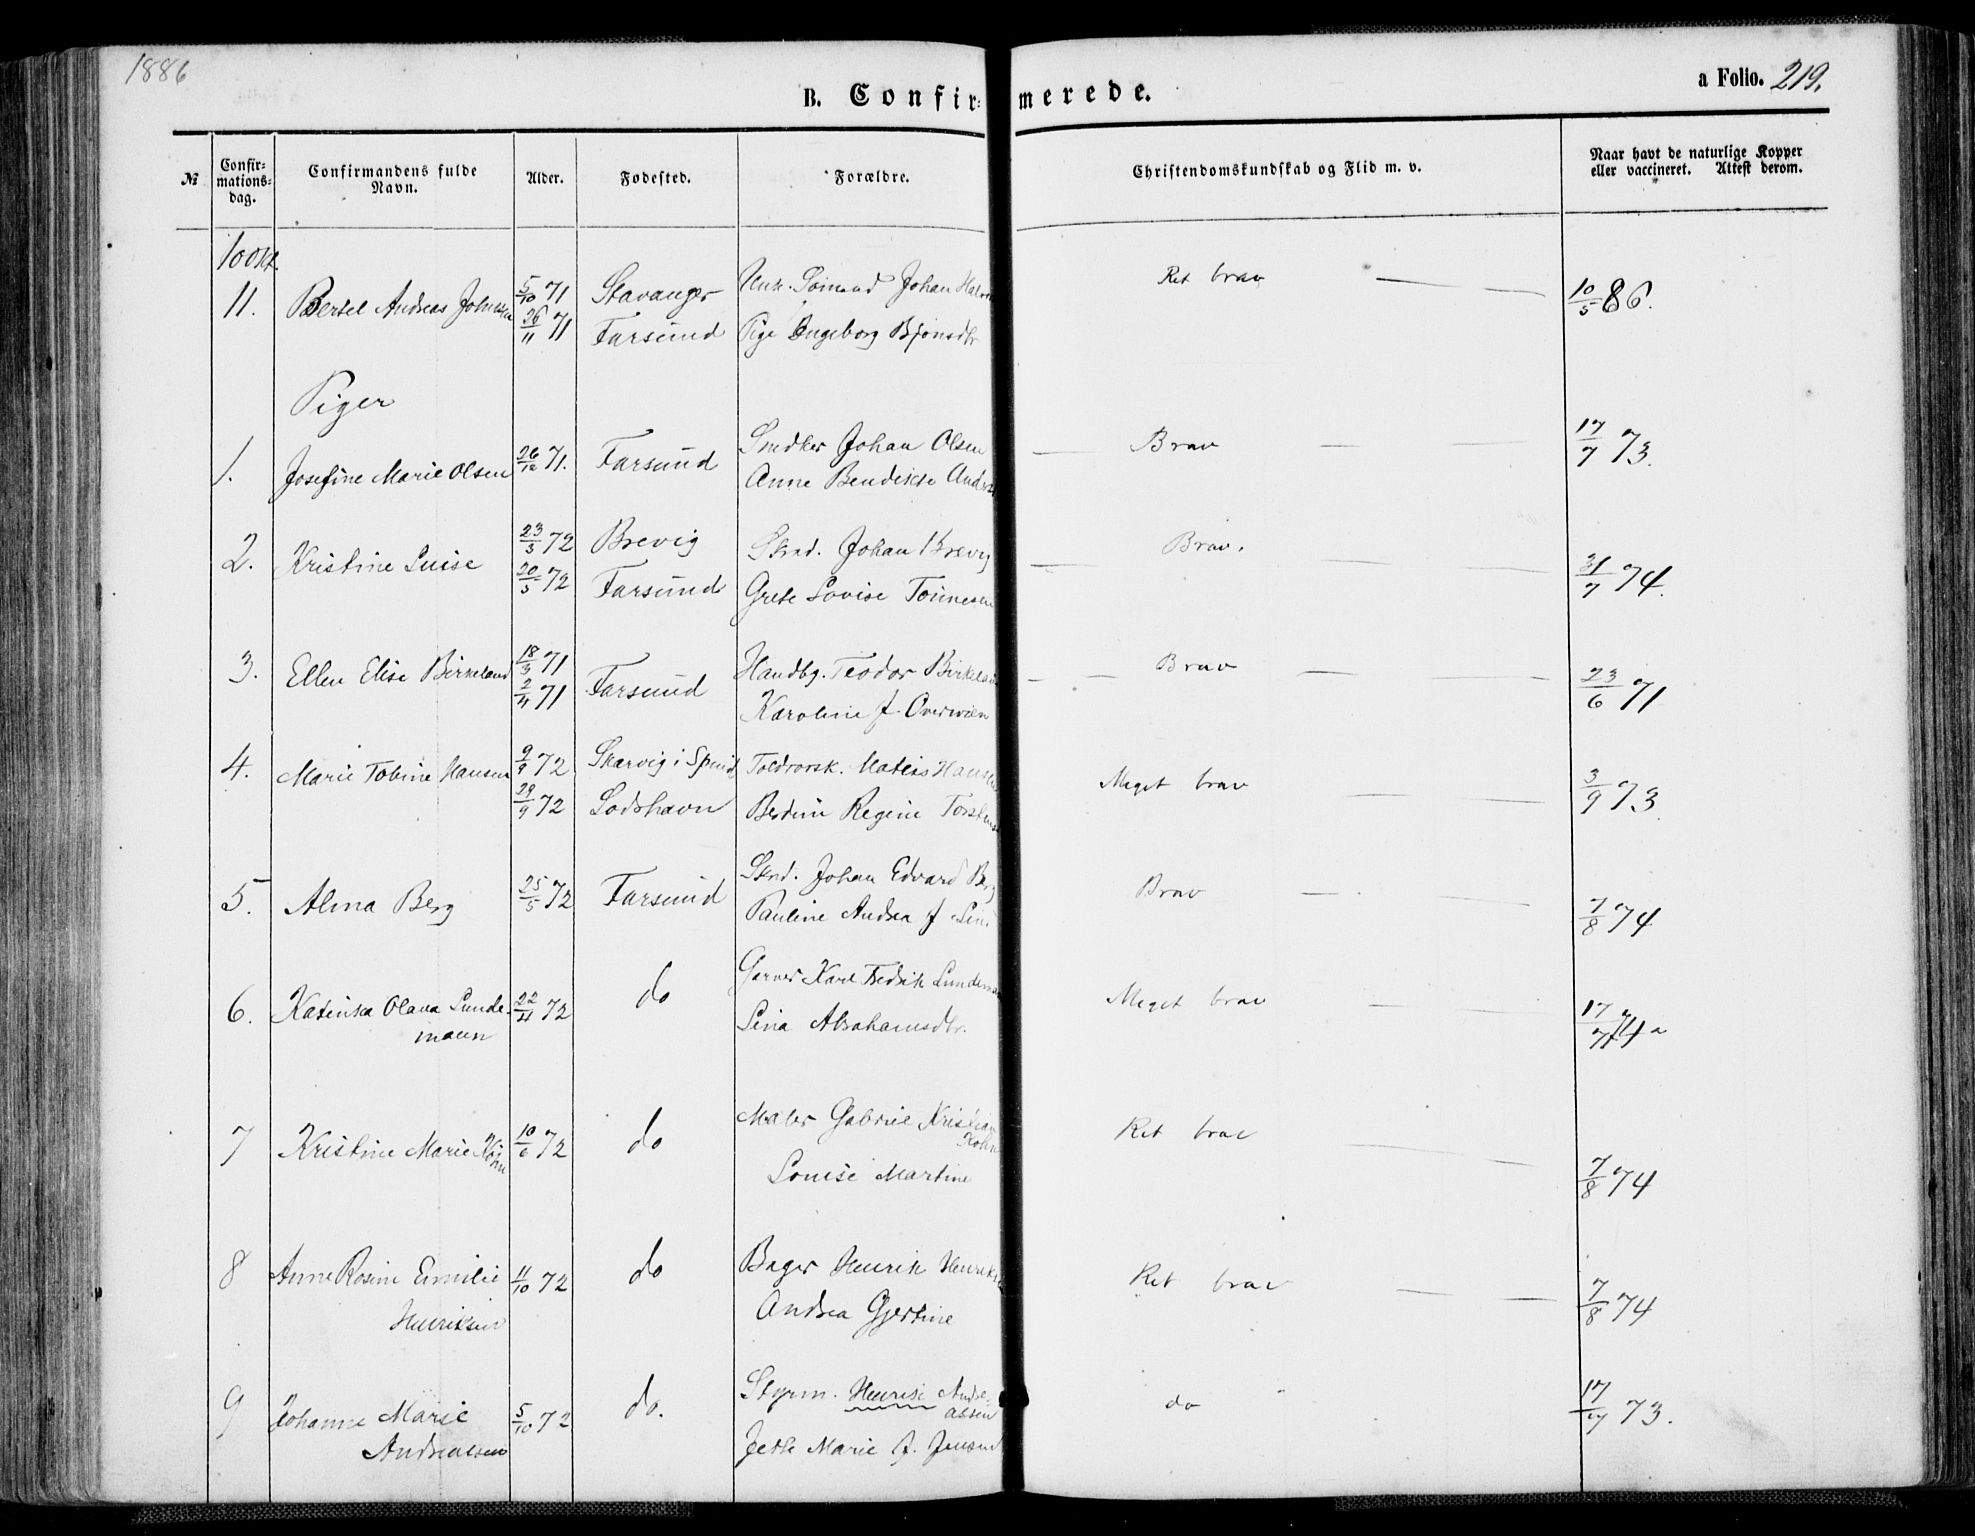 1886
B. Confirmerede.
a Folio. 219.
№
Confirmations-dag.
Confirmandens fulde Navn.
Alder.
Fødested.
Forældre.
Christendomskundskab og Flid m. v.
Naar havt de naturlige Kopper eller vaccineret. Attest derom.
10 Okt.
11. Bertel Andreas Johnsen 5/10 71 Stavanger Johan Ret brav 10/5 86.
26/11 71 Farsund Pige Ingeborg
Piger
1. Josefine Marie Olsen 26/12 71. Farsund Snedker Johan Olsen Brav 17/7 73.
Anne Bendikte
2. Kristine Luise 23/3 72 Brevig Johan Brevig Brav. 31/7 74.
20/5 72 Farsund Grete Lovise Tønnesen
3. Ellen Elise Birkeland 18/3 71 Farsund Handbg. Teodor Birkeland Brav 23/6 71
2/4 71 Karoline J.
4. Marie Tobine Hansen 9/9 72 Skarvig i Spind Toldrorsk. Matias Hansen Meget brav 3/9 73.
29/9 72 Lodshavn Regine
5. Alma Berg 25/5 72 Farsund Johan Edvard Berg Brav 7/8 74
Pauline Andrea J.
6. Katinka Olava Lunde- 22/4 72 do Garver Karl Fredrik Lundemann Meget brav 17/7 74
mann Lina Abrahamsdtr.
7 Kristine Marie Køhn 10/6 72 do Maler Gabriel Kristian Køhn Ret brav 7/8 74
Louise Martine
8 Anne Rosine Emilie 11/10 72 do Bager Henrik Henriksen Ret brav 7/8 74
Henriksen Andrea Gjertine
9 Johanne Marie 5/10 72 do. Styrm. Andreassen do 17/7 73.
Andreassen Jette Marie J. Jensen